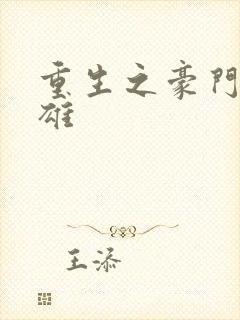 重生之豪門
雄
王添